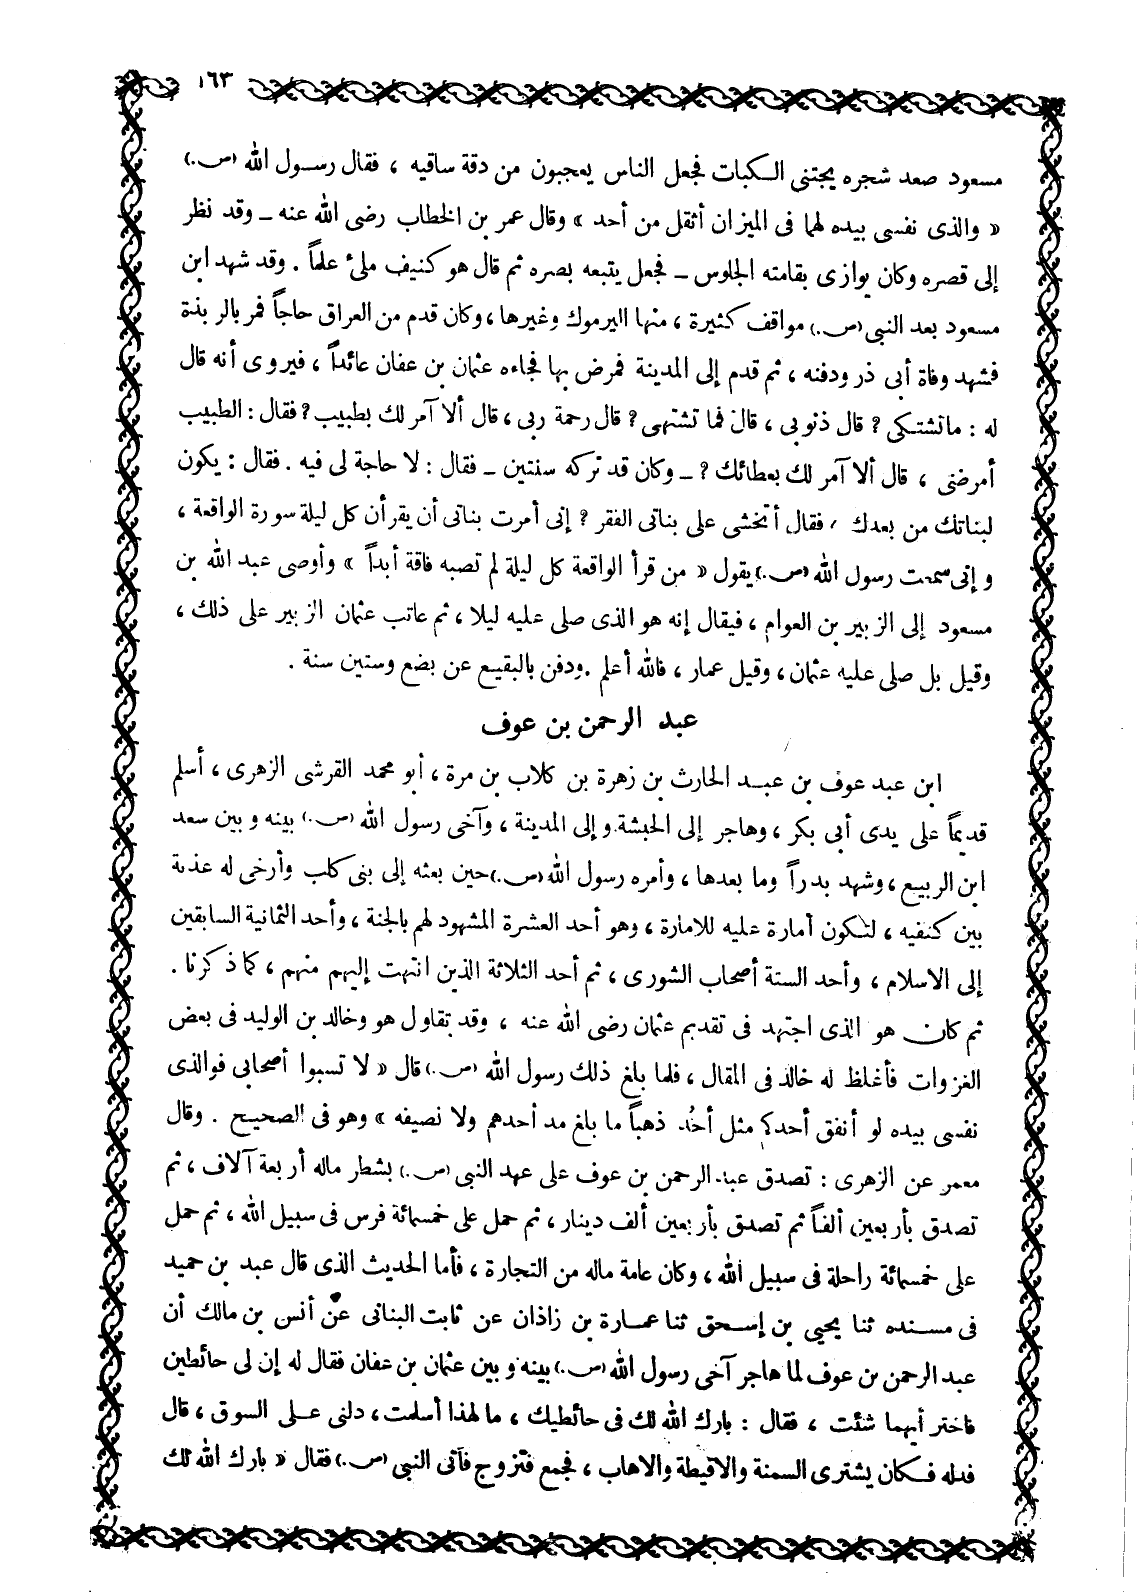 ١٦٣
مسعود صعد شجره يجتنى الكبات فجعل الناس يعجبون من دقة ساقيه ، فقال رسول الله (ص.)
« والذى نفسى بيده لهما فى الميزان أثقل من أحد » وقال عمر بن الخطاب رضى الله عنه ــ وقد نظر
إلى قصره وكان يوازى بقامته الجلوس ــ فجعل يتبعه بصره ثم قال هو كنيف ملئ علماً . وقد شهد ابن
مسعود بعد النبى (ص.) مواقف كثيرة ، منها اليرموك وغيرها ، وكان قدم من العراق حاجاً فمر بالربذة
فشهد وفاة أبى ذر ودفنه ، ثم قدم إلى المدينة فمرض بها فجاءه عثمان بن عفان عائداً ، فيروى أنه قال
له : ما تشتكى ? قال ذنوبى ، قال فما تشتهى ? قال رحمة ربى ، قال ألا آمر لك بطبيب ? فقال : الطبيب
أمرضنى ، قال ألا آمر لك بعطائك ? ــ وكان قد تركه سنتين ــ فقال : لا حاجة لى فيه . فقال : يكون
لبناتك من بعدك ، فقال أتخشى على بناتى الفقر ? إنى أمرت بناتى أن يقرأن كل ليلة سورة الواقعة ،
وإنى سمعت رسول الله (ص.) يقول « من قرأ الواقعة كل ليلة لم تصبه فاقة أبداً » وأوصى عبد الله بن
مسعود إلى الزبير بن العوام ، فيقال إنه هو الذى صلى عليه ليلا ، ثم عاتب عثمان الزبير على ذلك ،
وقيل بل صلى عليه عثمان ، وقيل عمار ، فالله أعلم . ودفن بالبقيع عن بضع وستين سنة .
عبد الرحمن بن عوف
ابن عبد عوف بن عبد الحارث بن زهرة بن كلاب بن مرة ، أبو محمد القرشى الزهرى ، أسلم
قديماً على يدى أبى بكر ، وهاجر إلى الحبشة وإلى المدينة ، وآخى رسول الله (ص.) بينه وبين سعد
ابن الربيع ، وشهد بدراً وما بعدها ، وأمره رسول الله (ص.) حين بعثه إلى بنى كلب وأرخى له عذبة
بين كتفيه ، لتكون أمارة عليه للامارة ، وهو أحد العشرة المشهود لهم بالجنة ، وأحد الثمانية السابقين
إلى الاسلام ، وأحد الستة أصحاب الشورى ، ثم أحد الثلاثة الذين انتهت إليهم منهم ، كما ذكرنا .
ثم كان هو الذى اجتهد فى تقديم عثمان رضى الله عنه ، وقد تقاول هو وخالد بن الوليد فى بعض
الغزوات فأغلظ له خالد فى المقال ، فلما بلغ ذلك رسول الله (ص.) قال « لا تسبوا أصحابى فوالذى
نفسى بيده لو أنفق أحدكم مثل أُحُد ذهباً ما بلغ مد أحدهم ولا نصيفه » وهو فى الصحيح . وقال
معمر عن الزهرى : تصدق عبد الرحمن بن عوف على عهد النبى (ص.) بشطر ماله أربعة آلاف ، ثم
تصدق بأربعين ألفاً ثم تصدق بأربعين ألف دينار ، ثم حمل على خمسمائة فرس فى سبيل الله ، ثم حمل
على خمسمائة راحلة فى سبيل الله ، وكان عامة ماله من التجارة ، فأما الحديث الذى قال عبد بن حميد
فى مسنده ثنا يحيى بن إسحق ثنا عمارة بن زاذان عن ثابت البنانى عن أنس بن مالك أن
عبد الرحمن بن عوف لما هاجر آخى رسول الله (ص.) بينه وبين عثمان بن عفان فقال له إن لى حائطين
فاختر أيهما شئت ، فقال : بارك الله لك فى حائطيك ، ما لهذا أسلمت ، دلنى على السوق ، قال
فدله فكان يشترى السمنة والاقيطة والاهاب ، فجمع فتزوج فأتى النبى (ص.) فقال « بارك الله لك